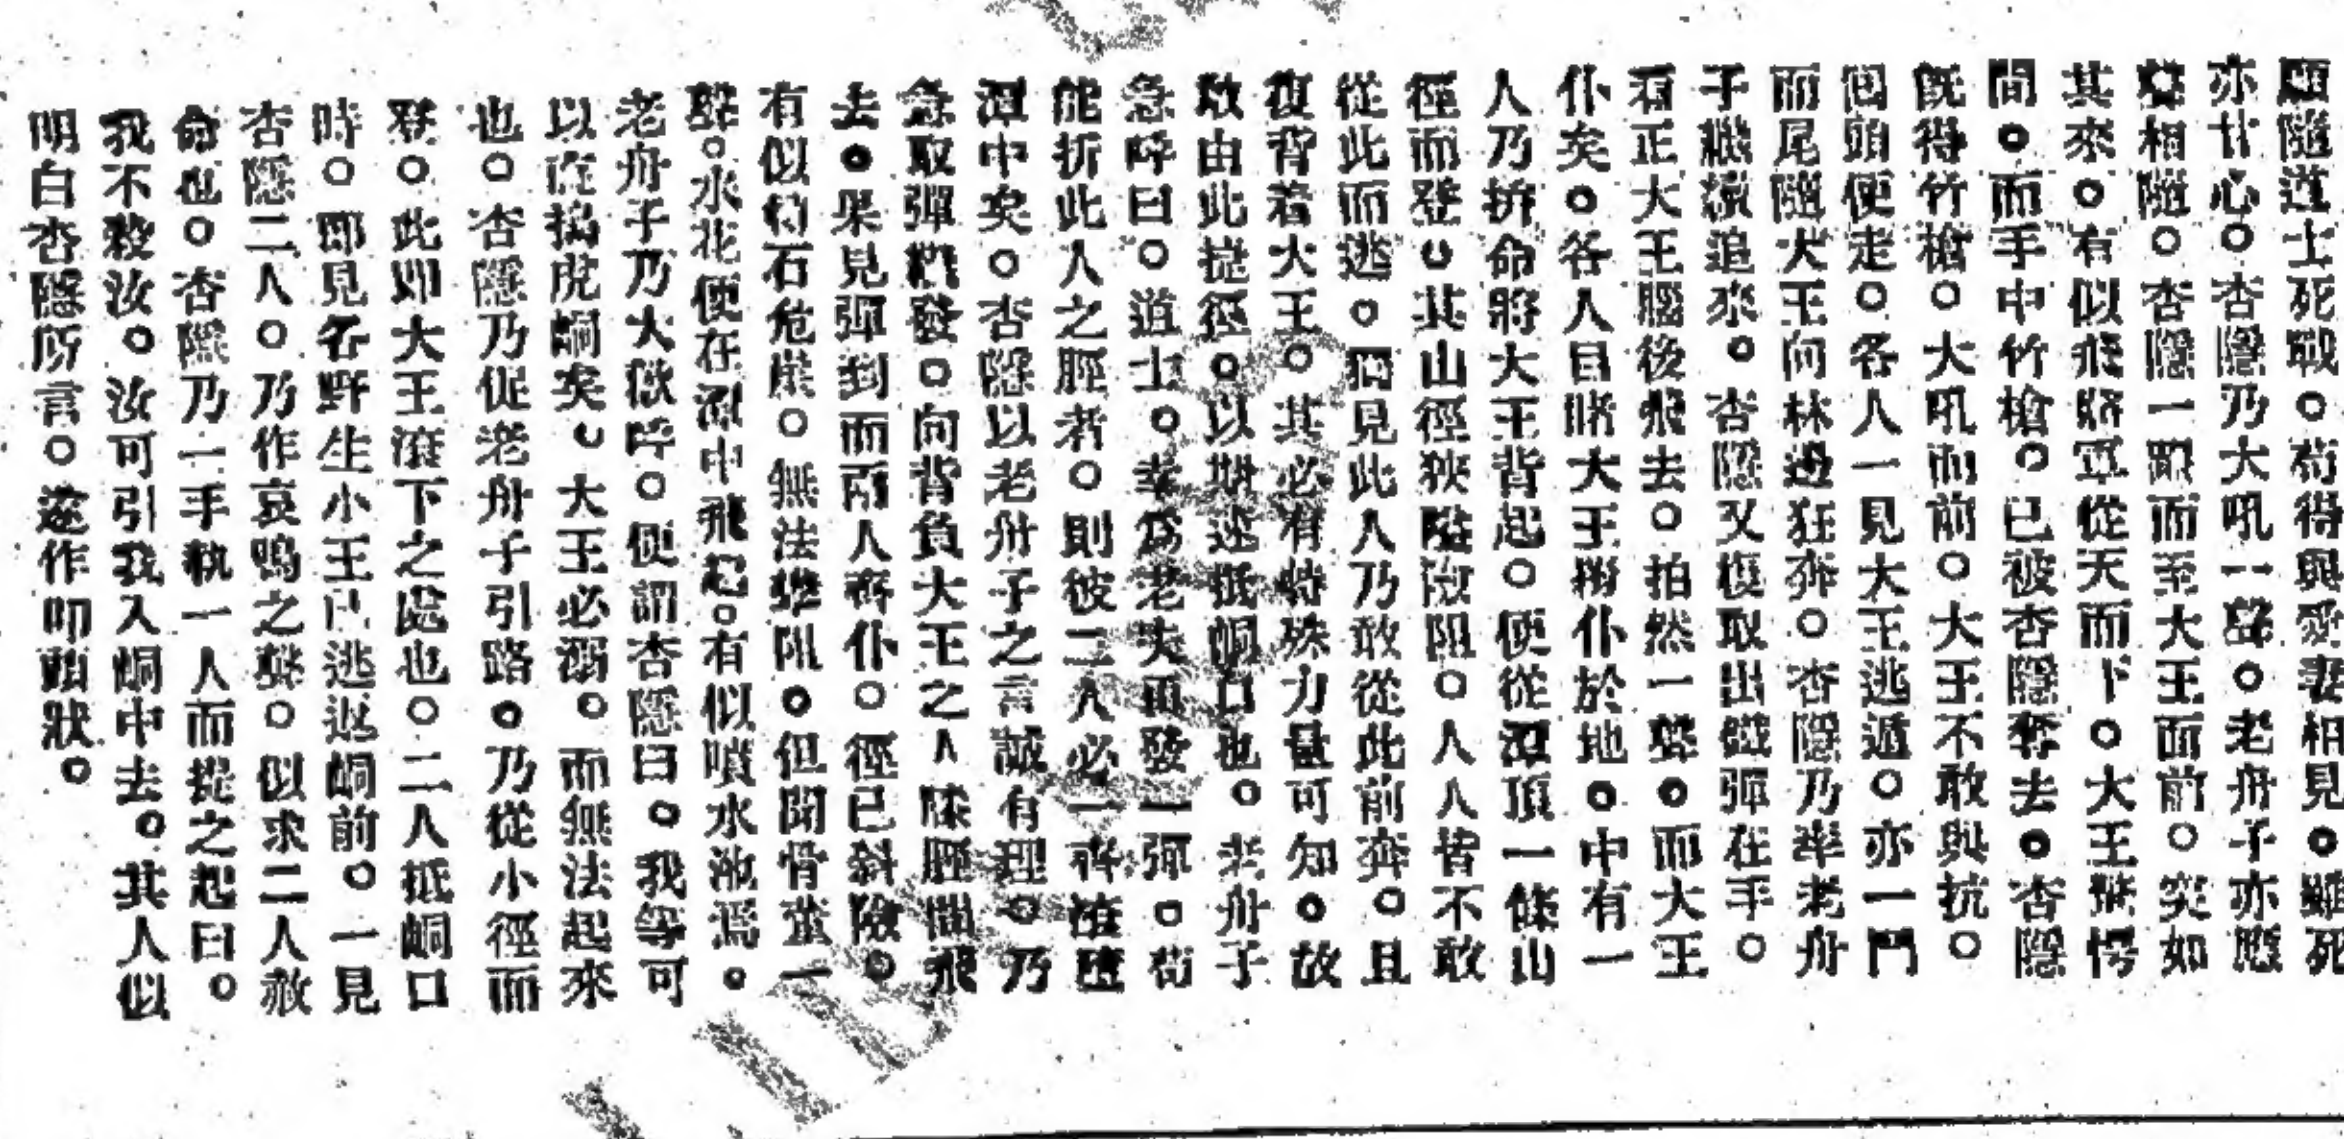 願隨道士死戰。苟得與愛妻相見。雖死
亦甘心。杏隱乃大吼一聲。老舟子亦應
聲相隨。杏隱一躍而至大王面前。突如
其來。有似飛將軍從天而下。大王驚愕
間。而手中竹槍。已被杏隱奪去。杏隱
既得竹槍。大吼而前。大王不敢與抗。
回頭便走。各人一見大王逃遁。亦一鬥
而尾隨大王向林邊狂奔。杏隱乃率老舟
子繼續追來。杏隱又復取出鐵彈在手。
看正大王腦後飛去。拍然一聲。而大王
仆矣。各人目睹大王撲仆於地。中有一
人乃拚命將大王背起。便從潭頂一條山
徑而登。其山徑狹隘險阻。人人皆不敢
從此而逃。獨見此人乃敢從此前奔。且
復背着大王。其必有特殊力量可知。故
敢由此捷徑。以期速抵峒口也。老舟子
急呼曰。道士。幸為老夫再發一彈。苟
能折此人之脛者。則彼二人必一齊墮
潭中矣。杏隱以老舟子之言誠有理。乃
急取彈遙發。向背負大王之人膝脛間飛
去。果見彈到而兩人齊仆。徑已斜險。
有似特石危崖。無法攀阻。但聞骨董一
聲。水花便在潭中飛起。有似噴水池焉。
老舟子乃大歡呼。便謂杏隱曰。我等可
以直搗虎峒矣。大王必溺。而無法起來
也。杏隱乃促老舟子引路。乃從小徑而
登。此即大王滾下之處也。二人抵峒口
時。即見各野生小王已逃返峒前。一見
杏隱二人。乃作哀鳴之聲。似求二人赦
命也。杏隱乃一手執一人而提之起曰。
我不殺汝。汝可引我入峒中去。其人似
明白杏隱所言。遂作叩頭狀。